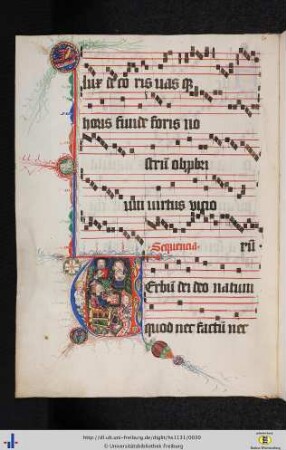 lux deco ris uas or
horis funde foris no
strū obprbri
um uirtus uicio
Sequencia. rū
Erbū dei deo natum
quod nec factū nec
http://dl.ub.uni-freiburg.de/diglit/hs1131/0030
© Universitätsbibliothek Freiburg